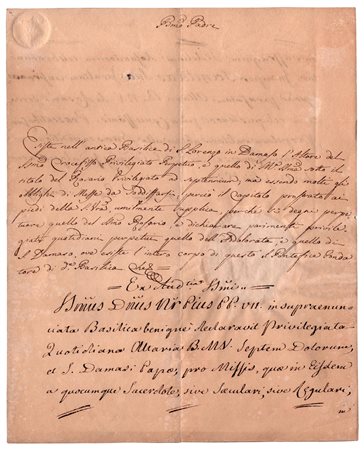 Bmo Padre
Esiste nell'antica Basilica di S. Lorenzo in Damaso l'Altare del
Smo Crocefisso Privilegiato Perpetuo, e quello di Ma Vna sotto il
titolo del Rosario Privilegiato ad septennium, ma essendo molti gli
Oblighi di Messe da soddisfarsi, perciò il Capitolo prostrato ai
piedi della Sta Va umilmente supplica, perchè si degni perpe=
tuare quello del Smo Rosario, e dichiarare parimenti privile=
giati quotidiani perpetui quello dell' Addolorata, e quello di
S. Damaso, ove esiste l'intero corpo di questo S. Pontefice Fonda
tore di da Basilica
Ex Audtia Smi
Ssmus Dnus Nr Pius PP. VII. in supraenun
ciata Basilica benigne declaravit Privilegiata
Quotidiana Altaria B. M. V. Septem Dolorum,
et S. Damasi Papae, pro Missis, quae in Eisdem
a quocumque Sacerdote, sive Saeculari, sive Regulari,
in